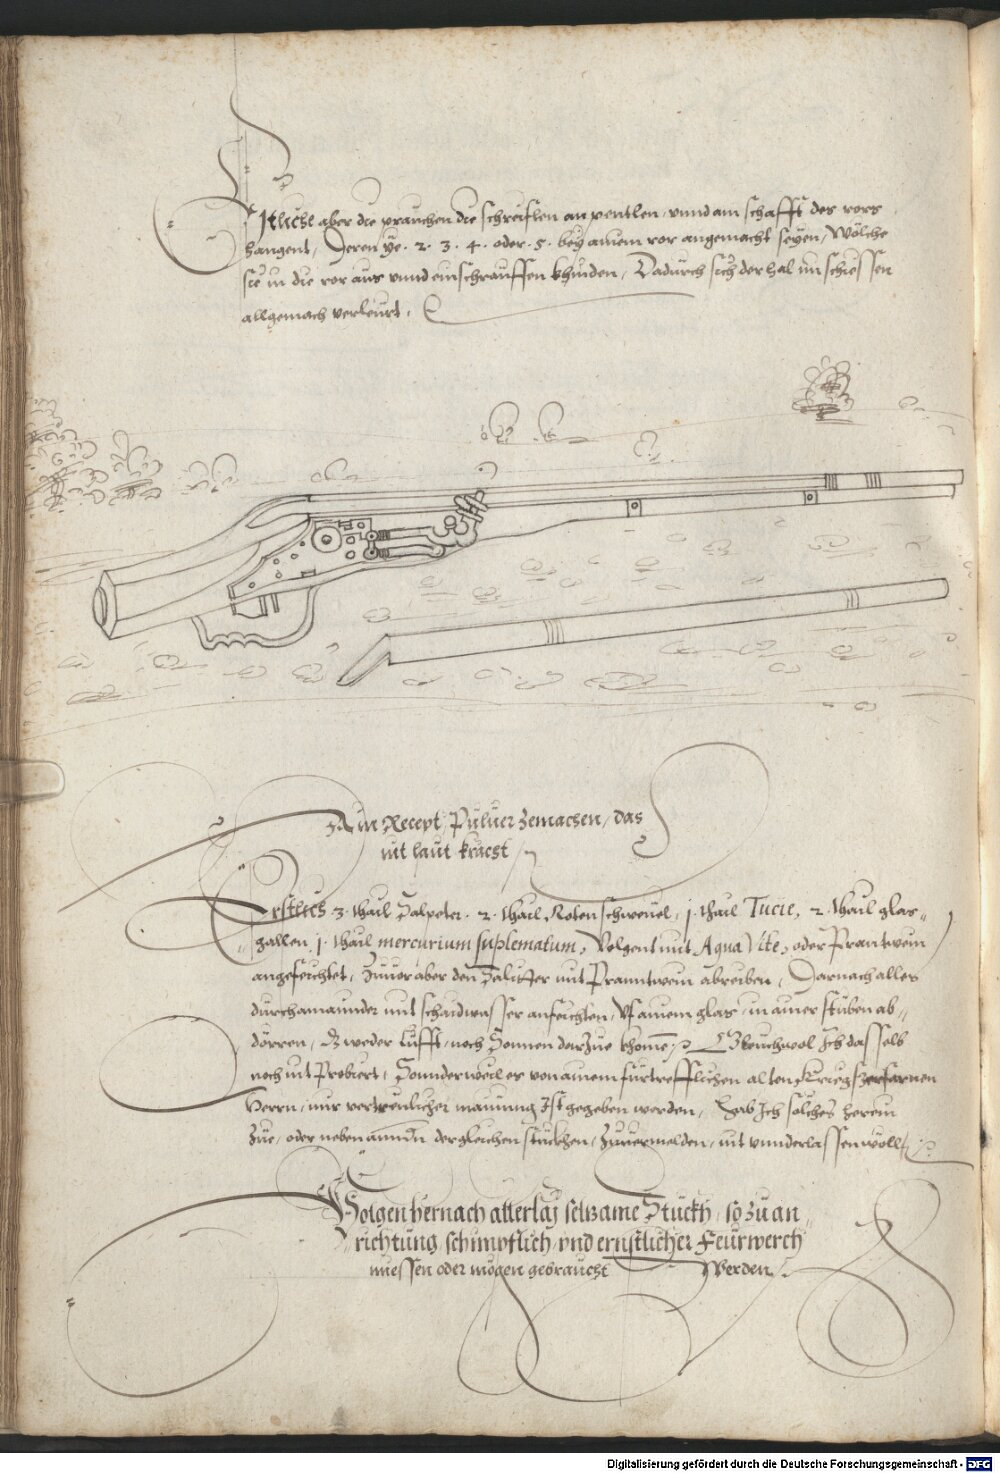 Etliche aber die prauchen die schreiflen an pentlen, vnnd am schafft des rors
hangent, Deren ye .2.3.4. oder .5. bey ainem ror angemacht seyen, Wölche
sie in die ror aus vnnd einschrauffen khinden, Dadurch sich der hal im schiessen
allgemach verleurt.
Ain Recept, Puluer zemachen, das
nit laut kracst
Erstlich .3. thail Salpeter .2. thail Roten schweuel, j. thail Tucie, 2. thail glas=
gallen, j. thail mercurium suplematum, Volgent mit Aqua Vite, oder Prantwein
angefeichtet, Zuuor aber den Salitter mit Pranntwein abreiben, Darnach alles
durchainannder mit schaidwasser anfeichten, Vf ainem glas, in ainer stuben ab=
dörren, Das weder Lufft, noch Sonnen darzue khome, Gleuchwol Ich dasselb
noch nit Probiert, Sonnder weil es von ainem fürtrefflichen alten Kriegserfarnen
Herrn, mir vertreulicher mainung Ist gegeben worden, Hab Ich solches herein
Zue, oder neben anndern dergleichen stückhen, Zuuermelden, nit vnnderlassen wöll
Volgen hernach allerlaj seltzame Stückh, so zu an=
richtung, schimpflich vnd ernstlicher Feurwerch
miessen oder mögen gebraucht werden
Digitalisierung gefördert durch die Deutsche Forschungsgemeinschaft - DFG